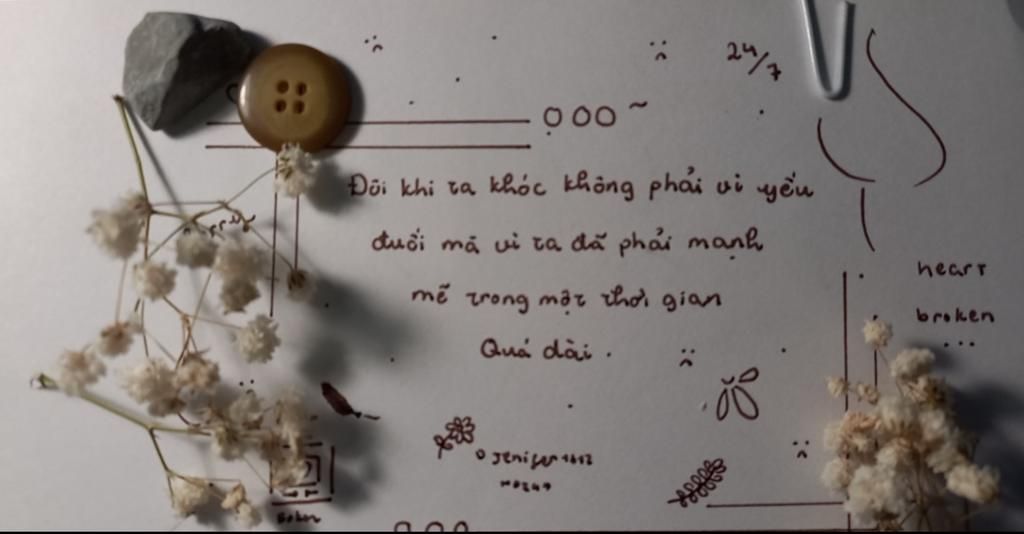 24/7
Đôi khi ta khóc không phải vì yếu
đuối mà vì ta đã phải mạnh
mẽ trong một thời gian
Quá dài.
heart
broken
...